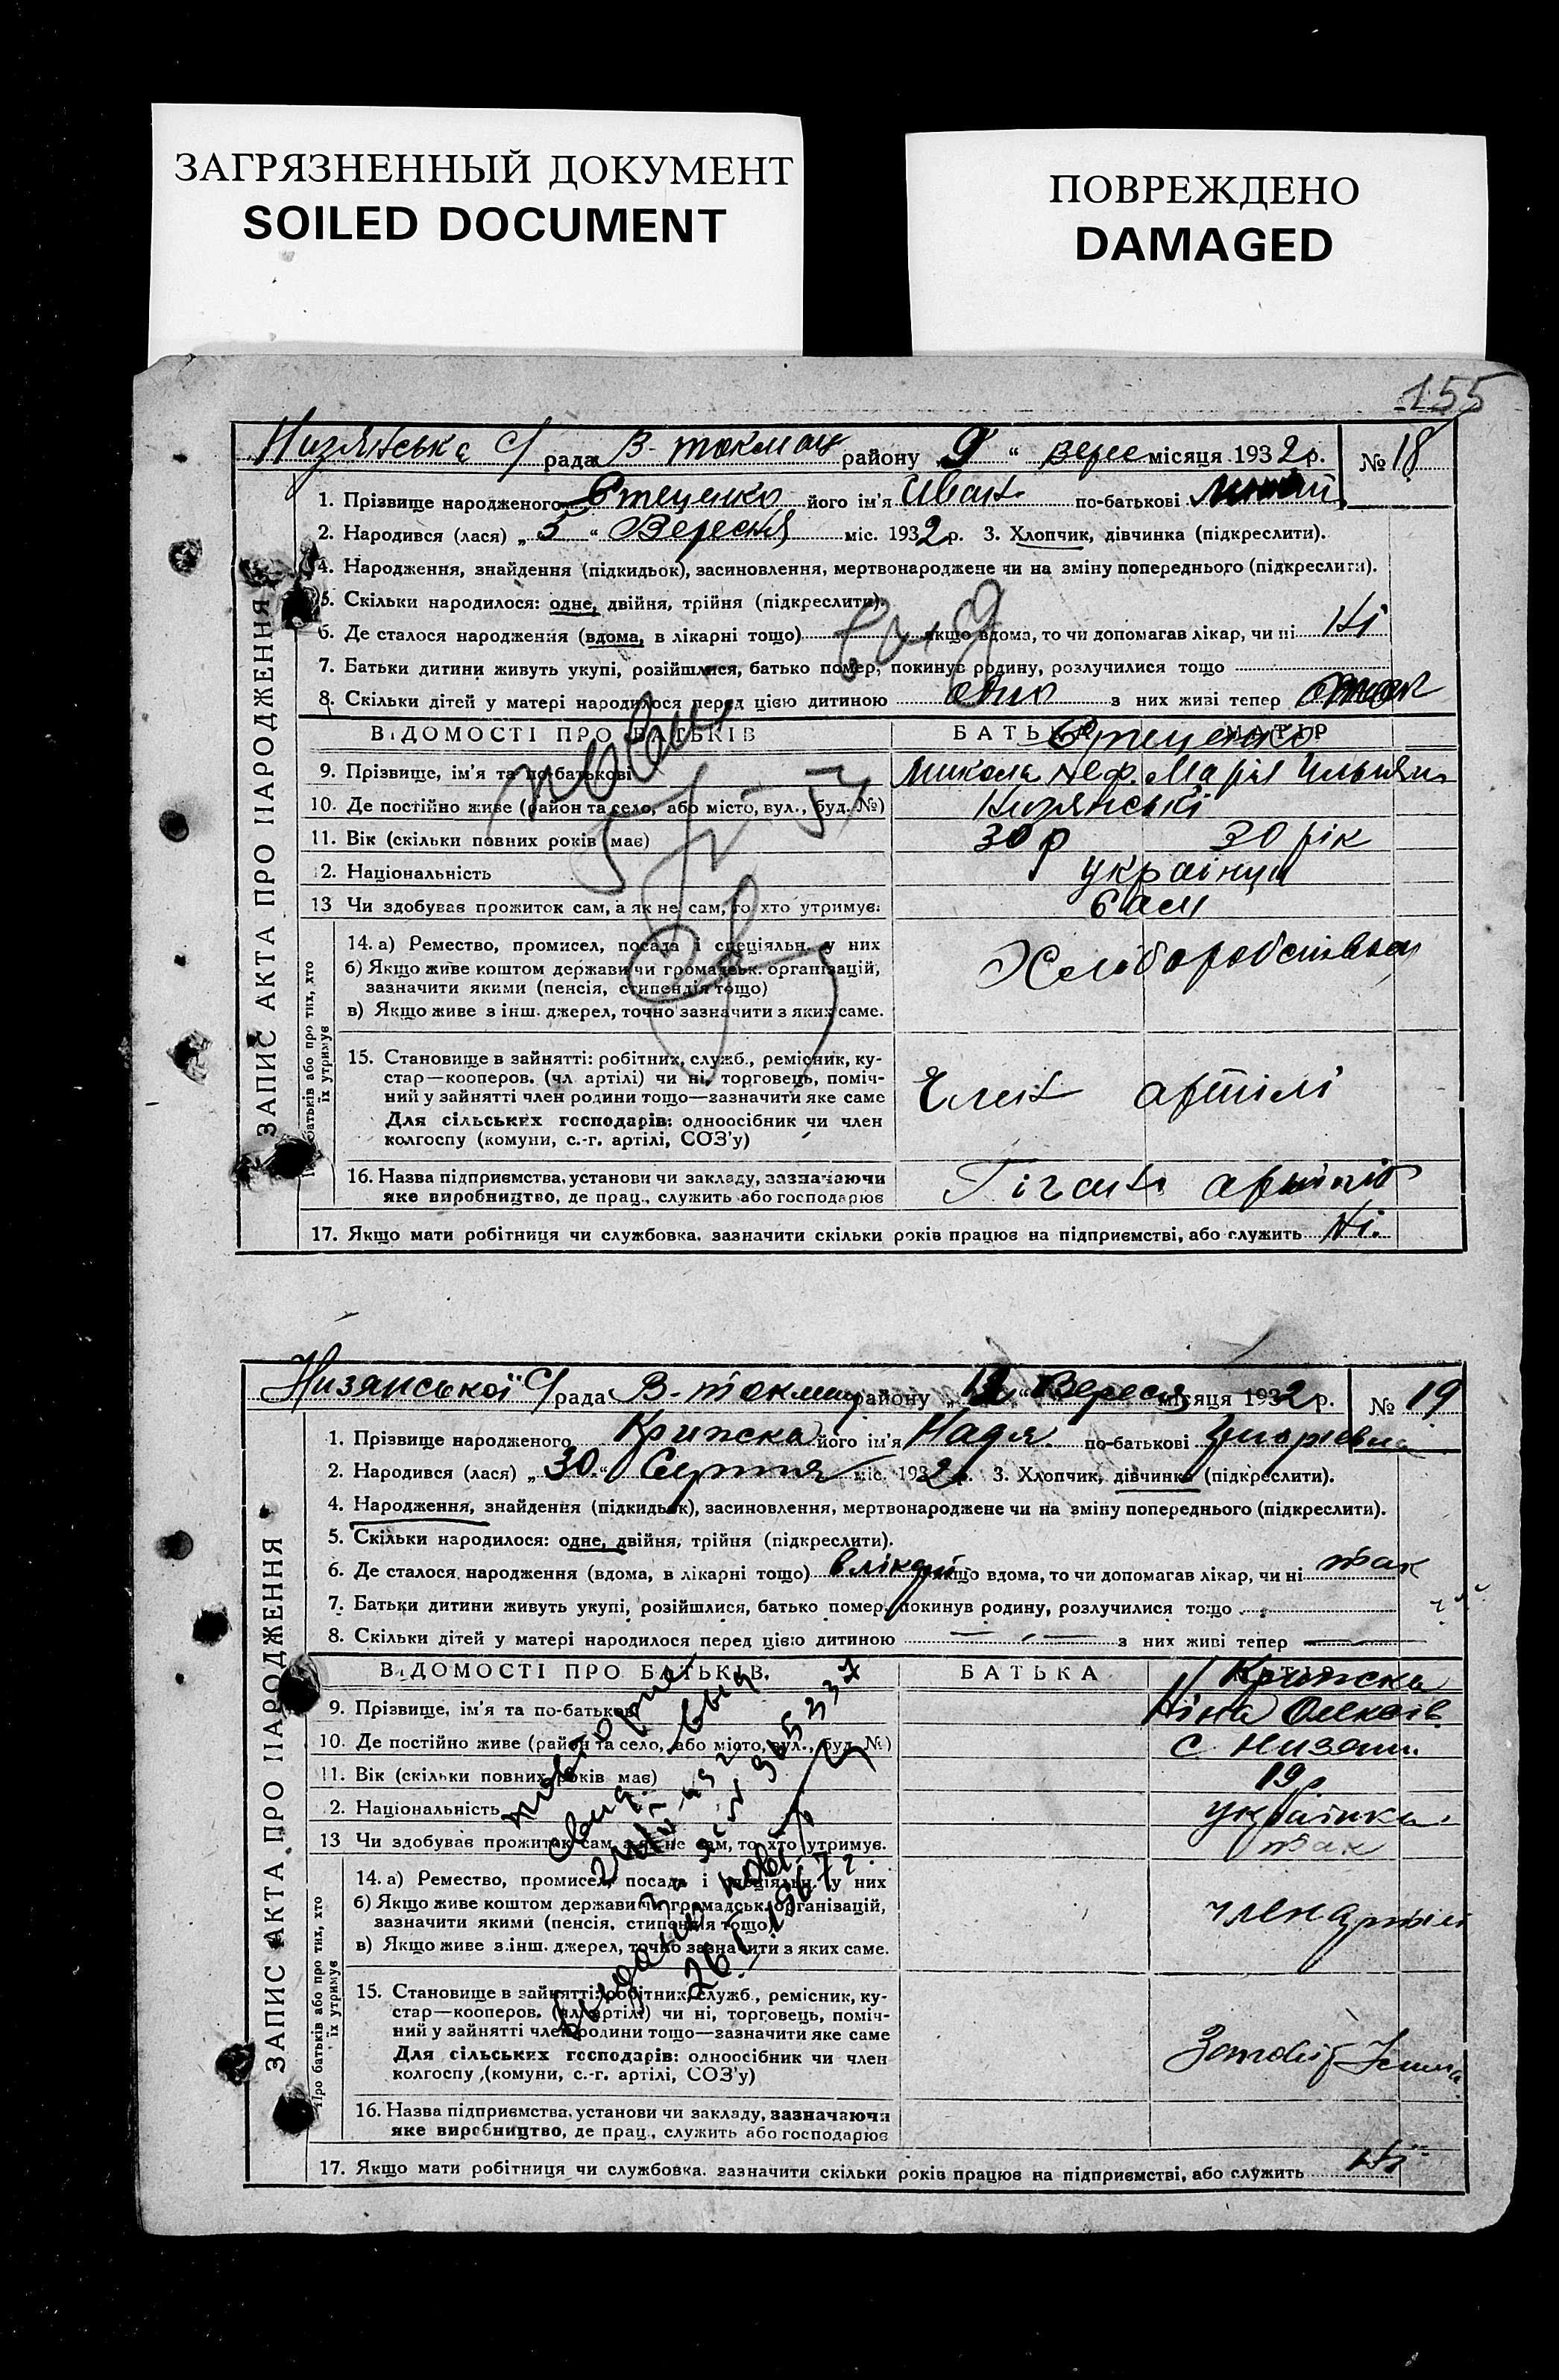 ЗАГРЯЗНЕННЫЙ ДОКУМЕНТ
SOILED DOCUMENT
ПОВРЕЖДЕНО
DAMAGED
155
ЗАПИС АКТА ПРО НАРОДЖЕННЯ
Низянська С/ рада В-токмац району „9“ Вересмісяця 1932р. № 18
1. Прізвище народженого Стеценко його ім'я Иван по-батькові
2. Народився (лася) „5“ Вересня міс. 1932р. 3. Хлопчик, дівчинка (підкреслити).
4. Народження, знайдення (підкидьок), засиновлення, мертвонароджене чи на зміну попереднього (підкреслити).
5. Скільки народилося: одне, двійня, трійня (підкреслити).
6. Де сталося народження (вдома, в лікарні тощо) якщо вдома, то чи допомагав лікар, чи ні Ні
7. Батьки дитини живуть укупі, розійшлися, батько помер, покинув родину, розлучилися тощо
8. Скільки дітей у матері народилося перед цією дитиною одно з них живі тепер
ВІДОМОСТІ ПРО БАТЬКІВ БАТЬКА МАТІР
Стеценко
9. Прізвище, ім'я та по-батькові Микола Неф. Марія Ильин
10. Де постійно живе (район та село, або місто, вул., буд. №) Низянські
11. Вік (скільки повних років має) 30 р 30 рік
12. Національність українци
13 Чи здобував прожиток сам, а як не сам, то хто утримує. Сам
Про батьків або про тих, хто їх утримує
14. а) Ремество, промисел, посада і спеціяльн. у них Хлиборобство
б) Якщо живе коштом держави чи громадськ. організацій,
зазначити якими (пенсія, стипендія тощо)
в) Якщо живе з інш. джерел, точно зазначити з яких саме.
15. Становище в зайнятті: робітник, служб., ремісник, ку-
стар—кооперов. (чл. артілі) чи ні, торговець, поміч-
ний у зайнятті член родини тощо—зазначити яке саме Член артілі
Для сільських господарів: одноосібник чи член
колгоспу (комуни, с.-г. артілі, СОЗ'у)
16. Назва підприємства, установи чи закладу, зазначаючи
яке виробництво, де прац., служить або господарює Гігант
17. Якщо мати робітниця чи службовка, зазначити скільки років працює на підприємстві, або служить Ні.
ЗАПИС АКТА ПРО НАРОДЖЕННЯ
Низянської С/ рада В-токмац району „12“ Вересня місяця 1932р. № 19
1. Прізвище народженого Крипска його ім'я Надя по-батькові
2. Народився (лася) „30“ Серпня міс. 1932р. 3. Хлопчик, дівчинка (підкреслити).
4. Народження, знайдення (підкидьок), засиновлення, мертвонароджене чи на зміну попереднього (підкреслити).
5. Скільки народилося: одне, двійня, трійня (підкреслити).
6. Де сталося народження (вдома, в лікарні тощо) в лікарні якщо вдома, то чи допомагав лікар, чи ні так
7. Батьки дитини живуть укупі, розійшлися, батько помер, покинув родину, розлучилися тощо
8. Скільки дітей у матері народилося перед цією дитиною — з них живі тепер —
ВІДОМОСТІ ПРО БАТЬКІВ. БАТЬКА Крипска
9. Прізвище, ім'я та по-батькові Ніна Олексів.
10. Де постійно живе (район та село, або місто, вул., буд. №) с Низяни.
11. Вік (скільки повних років має) 19р
12. Національність українка
13 Чи здобував прожиток сам, а як не сам, то хто утримує. так
Про батьків або про тих, хто їх утримує
14. а) Ремество, промисел, посада і спеціяльн. у них
б) Якщо живе коштом держави чи громадськ. організацій, член артілі
зазначити якими (пенсія, стипендія тощо)
в) Якщо живе з інш. джерел, точно зазначити з яких саме.
15. Становище в зайнятті: робітник, служб., ремісник, ку-
стар—кооперов. (чл. артілі) чи ні, торговець, поміч-
ний у зайнятті член родини тощо—зазначити яке саме
Для сільських господарів: одноосібник чи член Заповіт
колгоспу (комуни, с.-г. артілі, СОЗ'у)
16. Назва підприємства, установи чи закладу, зазначаючи
яке виробництво, де прац., служить або господарює
17. Якщо мати робітниця чи службовка, зазначити скільки років працює на підприємстві, або служить Ні